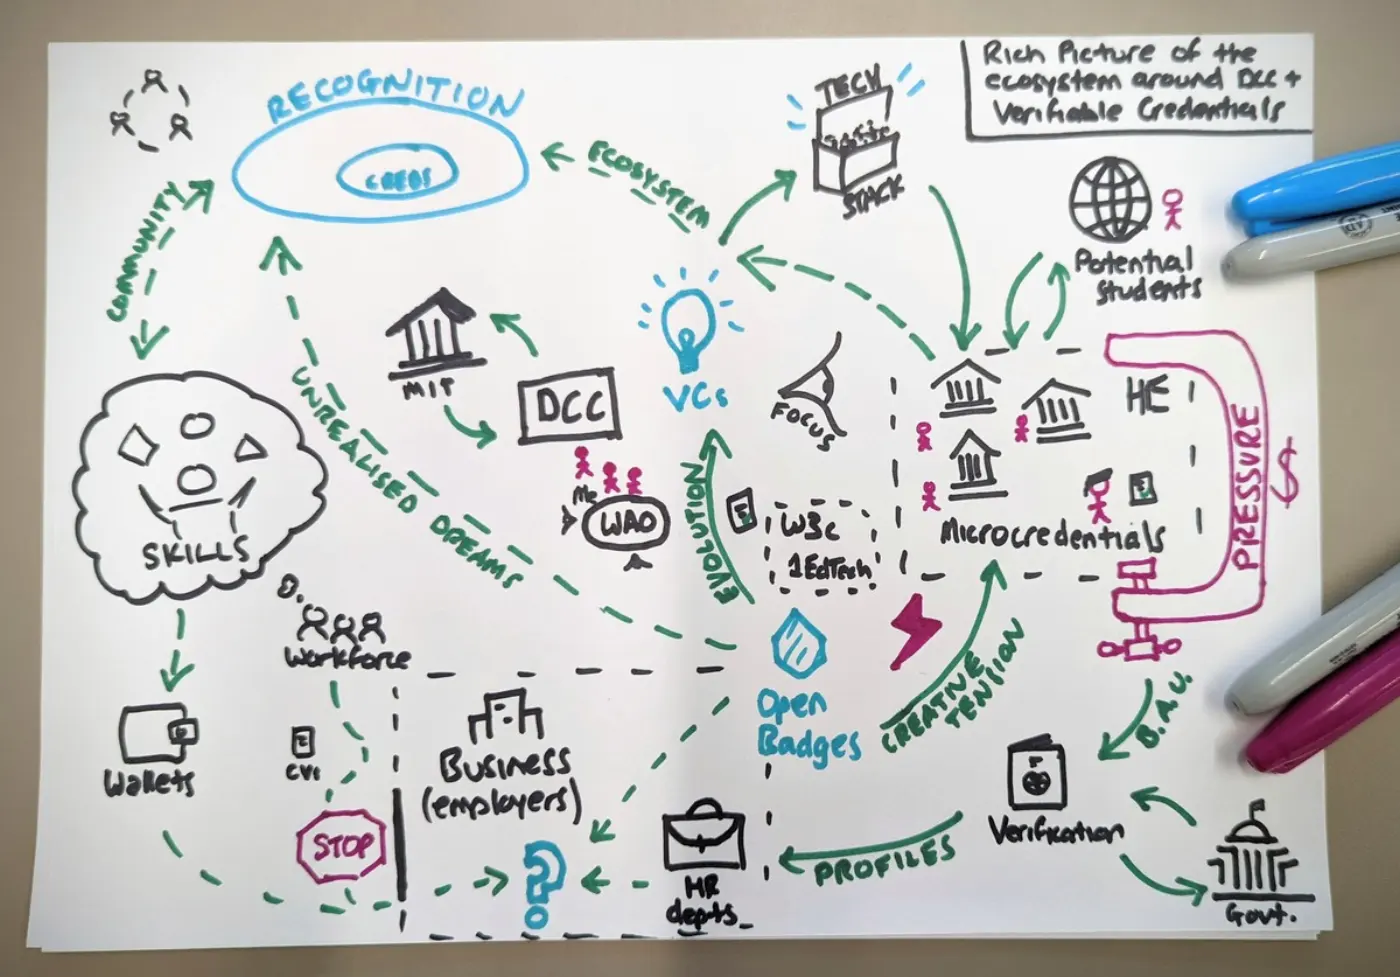 Rich Picture of the
ecosystem around DCC +
Verifiable Credentials
RECOGNITION
CREDS
TECH
STACK
ECOSYSTEM
COMMUNITY
Potential
Students
MIT
DCC
VCs
FOCUS
HE
PRESSURE
$
UNREALISED DREAMS
Me
WAO
EVOLUTION
W3C
1EdTech
Microcredentials
SKILLS
Workforce
Open
Badges
CREATIVE
TENSION
B.A.U.
Wallets
CVs
STOP
Business
(employers)
?
HR
depts.
PROFILES
Verification
Govt.